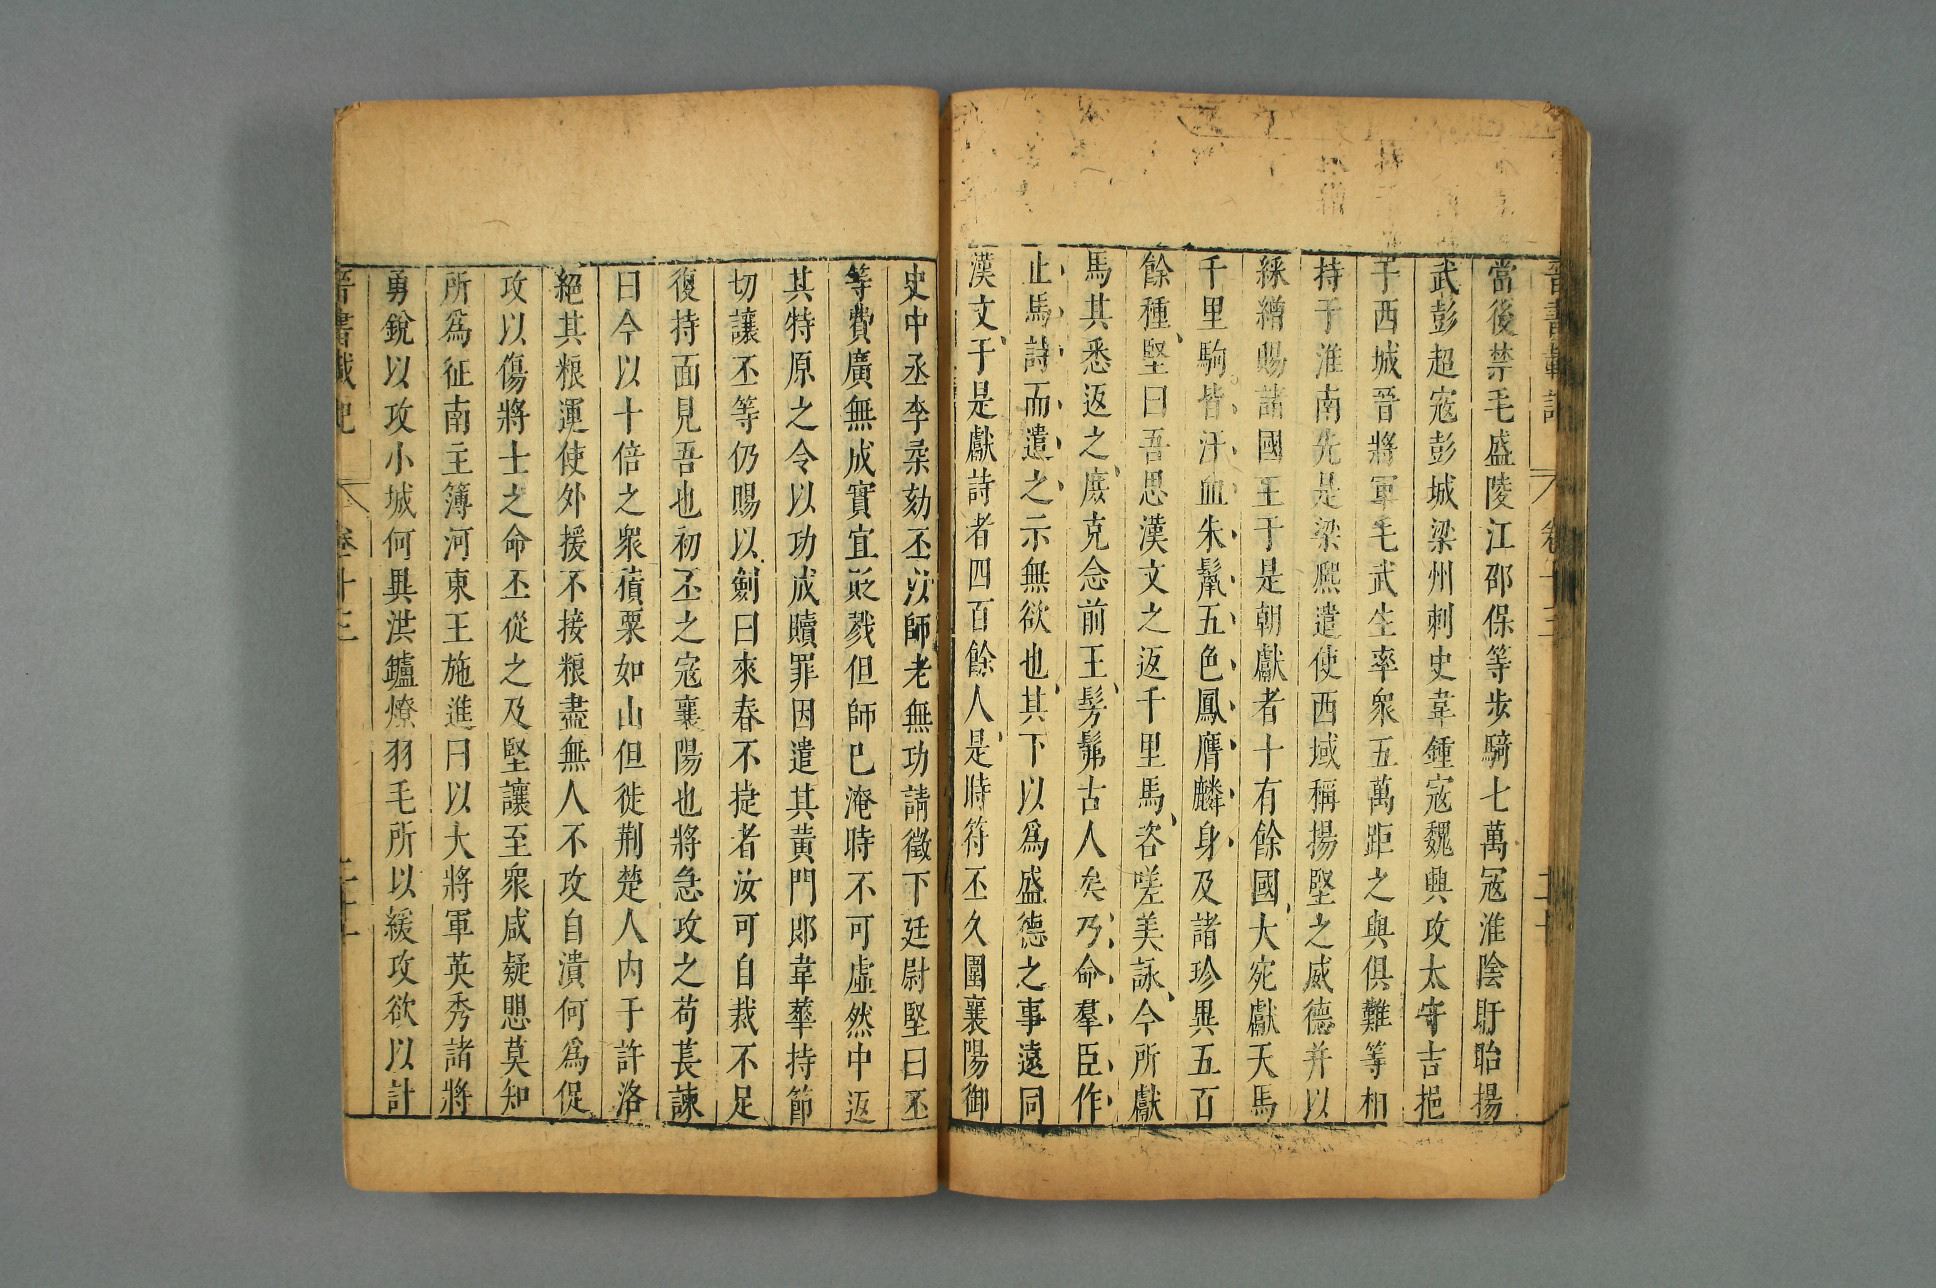 晉書載記 卷十三
當後禁毛盛陵江邵保等步騎七萬寇淮陰盱眙揚
武彭超寇彭城梁州刺史韋鍾寇魏興攻太守吉挹
于西城晉將軍毛武生率衆五萬距之與俱難等相
持于淮南先是梁熙遣使西域稱揚堅之威德并以
綵繒賜諸國王于是朝獻者十有餘國大宛獻天馬
千里駒皆汗血朱鬛五色鳳膺麟身及諸珍異五百
餘種堅曰吾思漢文之返千里馬咨嗟美詠今所獻
馬其悉返之庶克念前王髣髴古人矣乃命羣臣作
止馬詩而遣之示無欲也其下以爲盛德之事遠同
漢文于是獻詩者四百餘人是時符丕久圍襄陽御
史中丞李柔劾丕以師老無功請徵下廷尉堅曰丕
等費廣無成實宜貶戮但師已淹時不可虛然中返
其特原之令以功成贖罪因遣其黄門郎韋華持節
切讓丕等仍賜以劍曰來春不捷者汝可自裁不足
復持面見吾也初丕之寇襄陽也將急攻之苟萇諫
曰今以十倍之衆積粟如山但徙荆楚人内于許洛
絕其粮運使外援不接粮盡無人不攻自潰何爲促
攻以傷將士之命丕從之及堅讓至衆咸疑懼莫知
所爲征南主簿河東王施進曰以大將軍英秀諸將
勇銳以攻小城何異洪鑪燎羽毛所以緩攻欲以計
晉書載記 卷十三